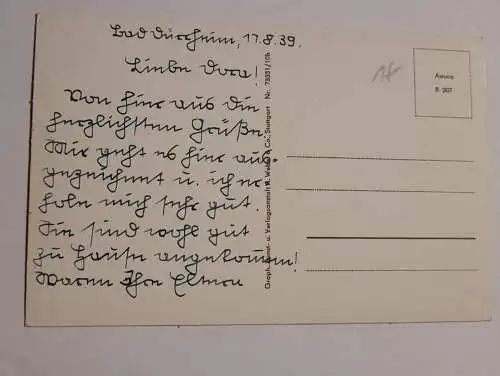 Bad Dürrheim, 17.8.39.
Liebe Dora!
Von hier aus die
herzlichsten Grüße.
Mir geht es hier aus-
gezeichnet u. ich er-
hole mich sehr gut.
Sie sind wohl gut
zu Hause angekommen!
Waren Ihre Eltern
Graph. Kunst- u. Verlagsanstalt A. Weber & Co., Stuttgart Nr. 73351/10h